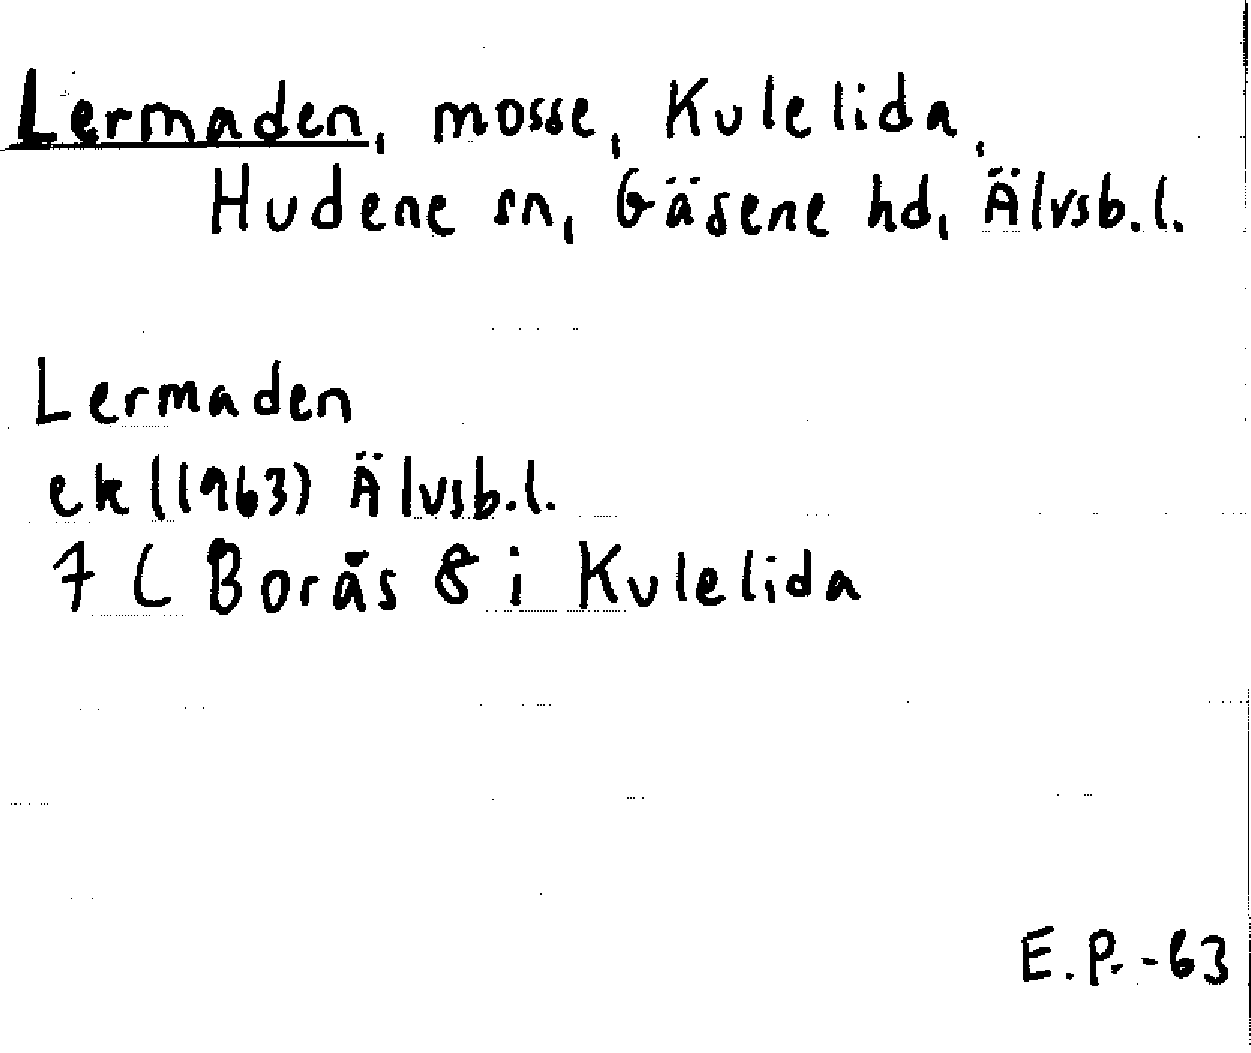 Lermaden, mosse, Kulelida,
Hudene sn, Gäsene hd, Älvsb.l.
Lermaden
ek (1963) Älvsb.l.
7 C Borås 8 i Kulelida
E.P. -63